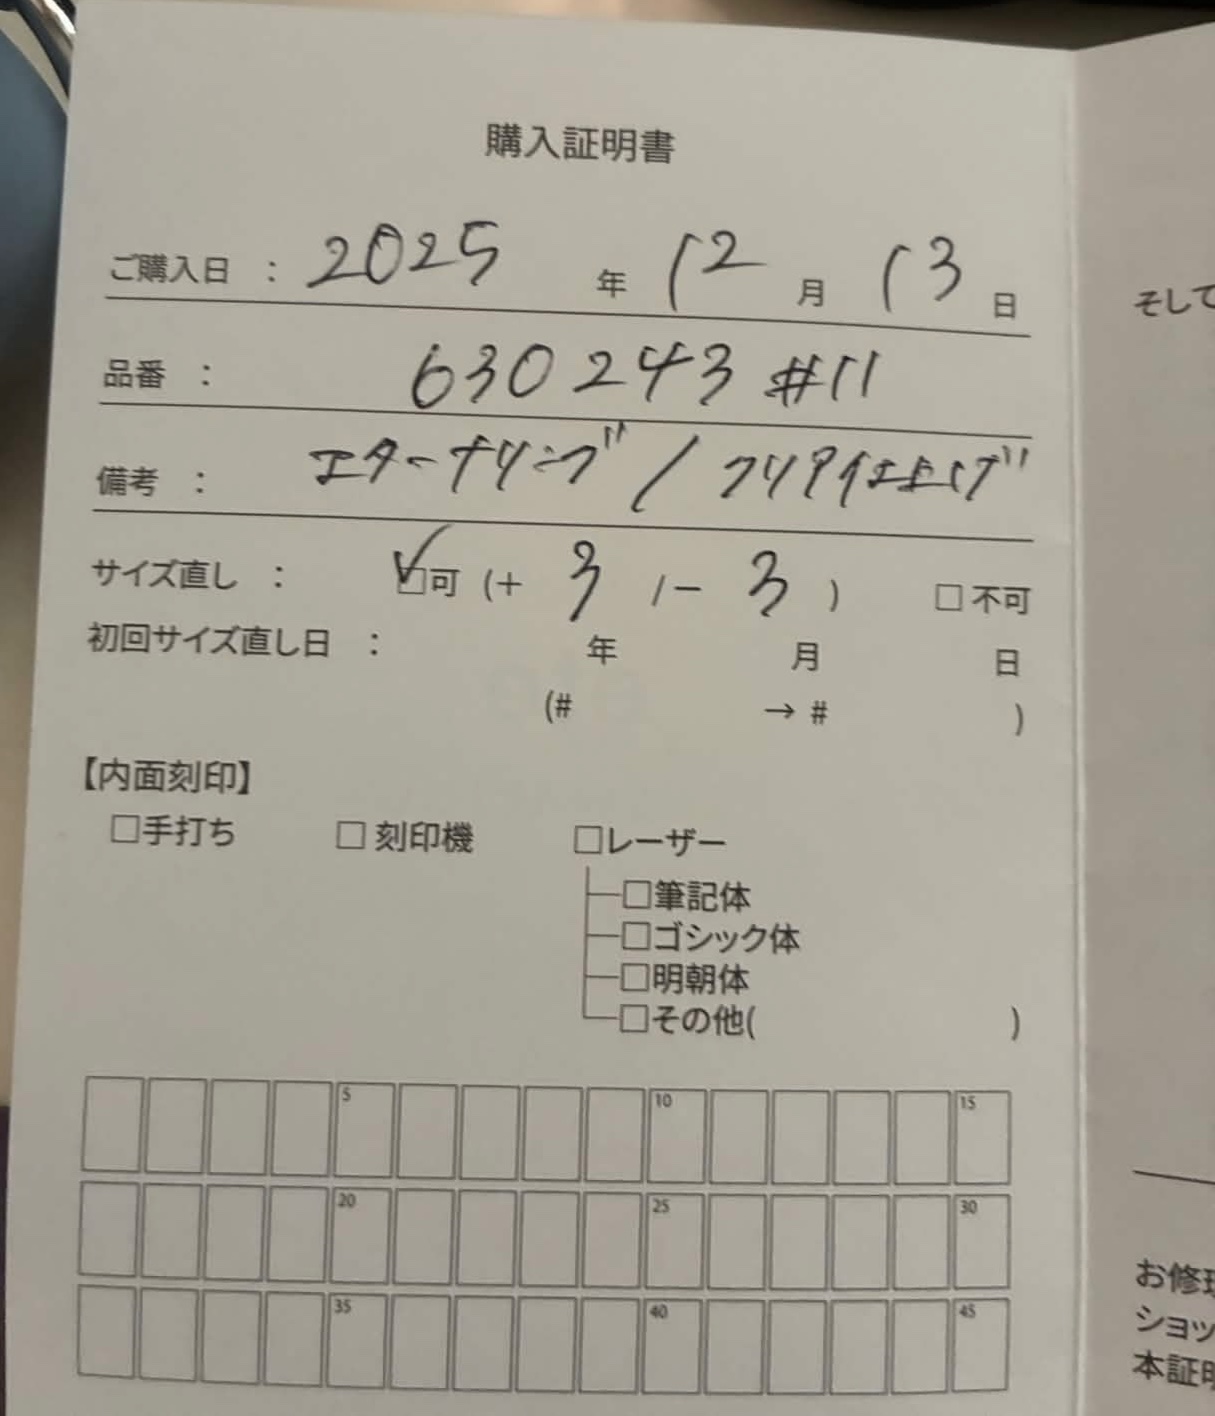 購入証明書
ご購入日 : 2025 年 12 月 13 日
品番 : 630243 #11
備考 : エターナリング / クリア仕上げ
サイズ直し : ☑可 (+ 3 /− 3 ) □不可
初回サイズ直し日 : 年 月 日
(# → # )
【内面刻印】
□手打ち □刻印機 □レーザー
□筆記体
□ゴシック体
□明朝体
□その他( )
5 10 15
20 25 30
35 40 45
そして
お修理
ショッ
本証明